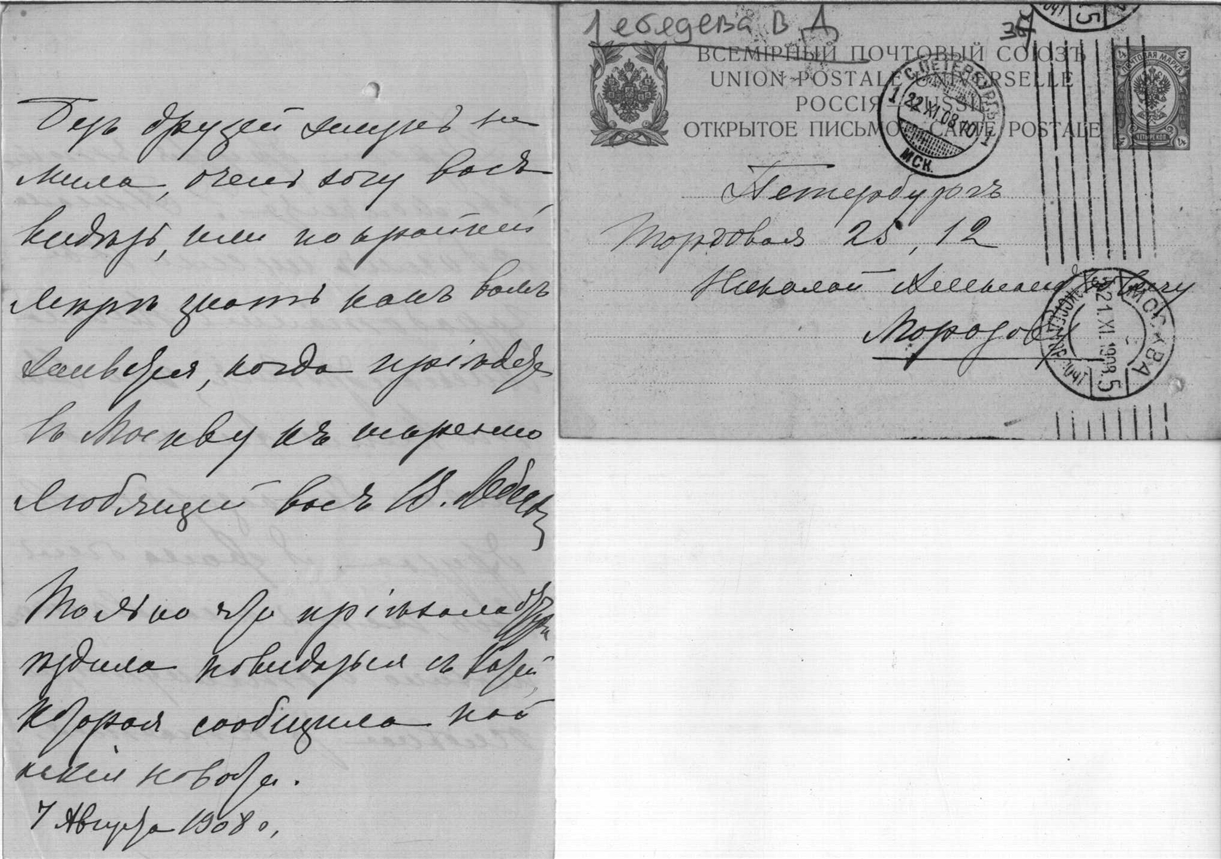 Безъ друзей жизнь не
мила, очень хочу васъ
видѣть, или по крайней
мѣрѣ знать какъ вамъ
живется, когда пріѣдете
въ Москву къ искренно
любящей васъ В. Лебедев
Только что пріѣхала
ѣздила повидаться съ
которая сообщила
новости.
7 Августа 1908 г.
Лебедева В Д
36
ВСЕМІРНЫЙ ПОЧТОВЫЙ СОЮЗЪ
UNION POSTALE UNIVERSELLE
РОССІЯ RUSSIE
ОТКРЫТОЕ ПИСЬМО CARTE POSTALE
С.ПЕТЕРБУРГЪ
1 22.XI.08.10 1
МСК.
Петербургъ
Торговая 25, 12
Николай Александровичу
Морозову
МОСКВА
21.XI.1908.5